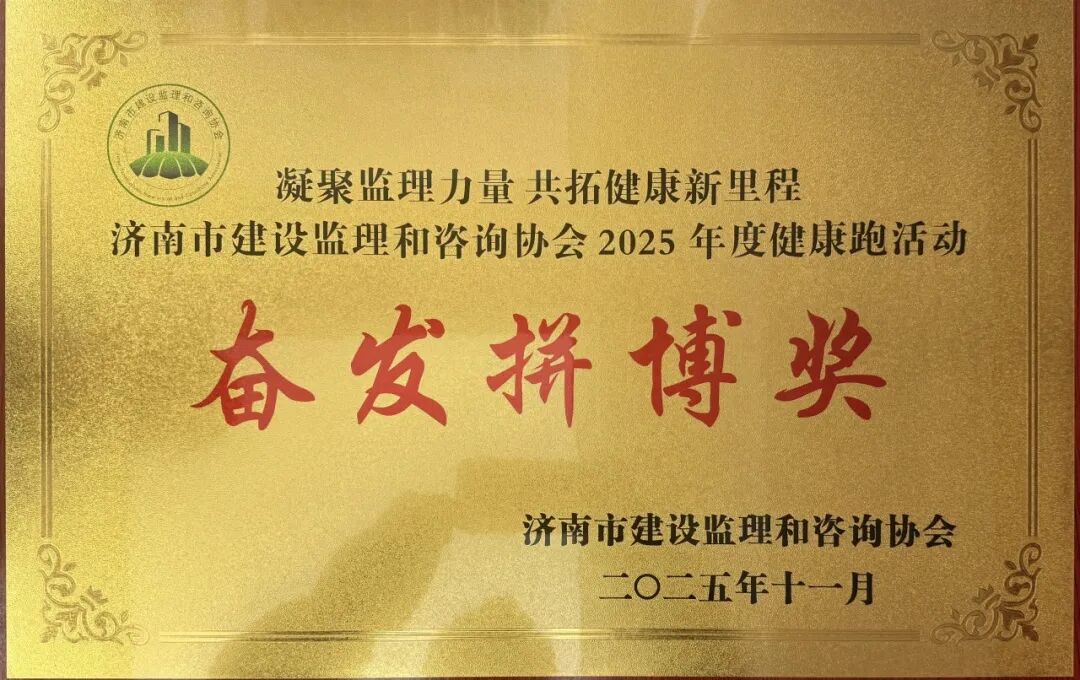 济南市建设监理和咨询协会
凝聚监理力量 共拓健康新里程
济南市建设监理和咨询协会 2025 年度健康跑活动
奋发拼博奖
济南市建设监理和咨询协会
二〇二五年十一月